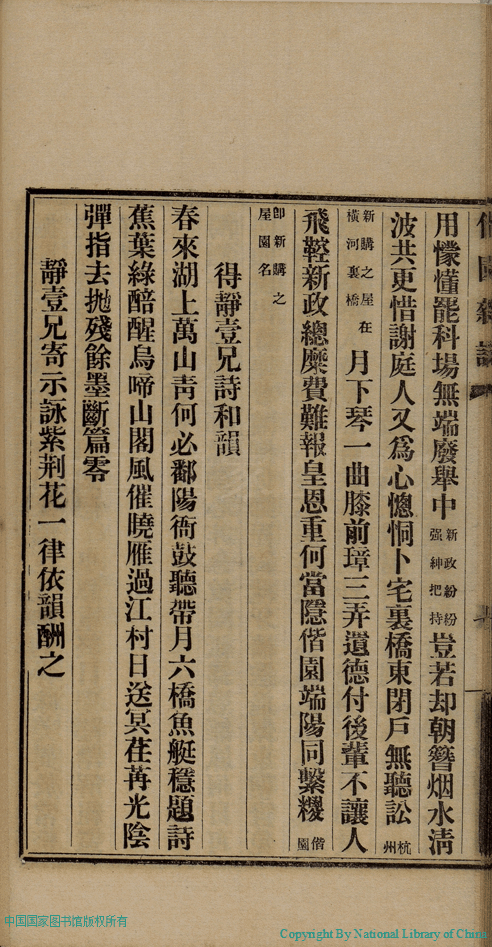 用懞懂罷科場無端廢舉中新政紛紛强紳把持豈若却朝簪烟水淸
波共更惜謝庭人又爲心憁恫卜宅裏橋東閉戶無聽訟杭州
新購之屋在橫河裏橋月下琴一曲膝前璋三弄遺德付後輩不讓人
飛鞚新政總糜費難報皇恩重何當隱偕園端陽同繫糉偕園
卽新購之屋園名
得靜壹兄詩和韻
春來湖上萬山靑何必鄱陽衙鼓聽帶月六橋魚艇穩題詩
蕉葉綠醅醒烏啼山閣風催曉雁過江村日送冥荏苒光陰
彈指去拋殘餘墨斷篇零
靜壹兄寄示詠紫荆花一律依韻酬之
中国国家图书馆版权所有
Copyright By National Library of China